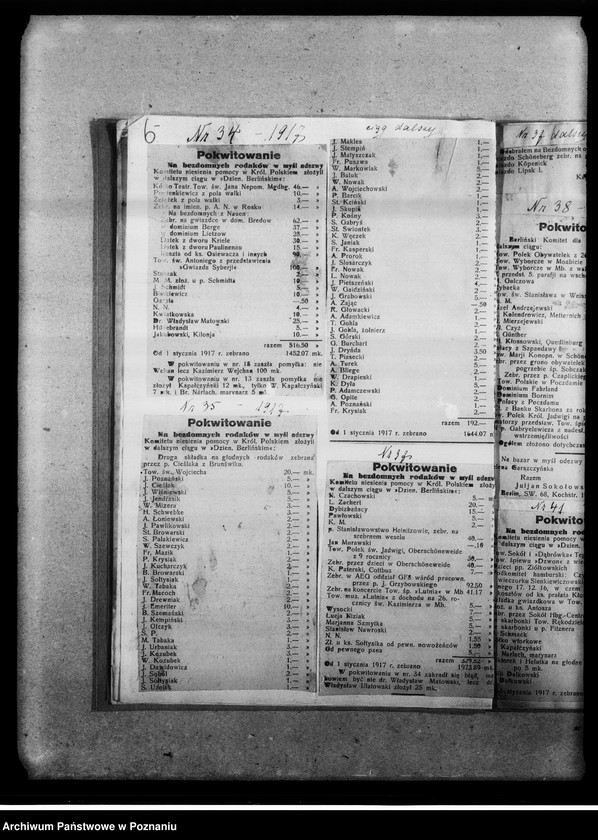 6 Nr 34 – 1917
Pokwitowanie
Na bezdomnych rodaków w myśl odezwy
Komitetu niesienia pomocy w Król. Polskiem złożyli
w dalszym ciągu w »Dzien. Berlińskim«:
Teatr. Tow. św. Jana Nepom. Mgdbg. 46.— »
z pola walki 10.— »
z pola walki 3.— »
Zebr. na imien. p. A. N. w Resku 14.— »
Na bezdomnych z Nauen:
Zebr. na gwiazdce w dom. Bredow 62.— »
w dominium Berge 37.— »
w dominium Lietzow 28.— »
Datek z dworu Kriele 30.— »
Datek z dworu Paulinenau 15.— »
Reszta od ks. Osiewacza i innych
Tow. św. Antoniego z przedstawienia
»Gwiazda Syberji« 100.— »
2.— »
M. M. złoż. u p. Schmidta 10.— »
J. Schmidt 5.— »
10.— »
—.50 »
N. N. 4.— »
Kwiatkowska 10.— »
Dr. Władysław Matowski 25.— »
Hillebrandt 5.— »
Jakubowski, Kilonja 10.— »
razem 516.50 »
Od 1 stycznia 1917 r. zebrano 1452.07 mk.
W pokwitowaniu w nr. 18 zaszła pomyłka: nie
Wehan lecz Kazimierz Wejchan 100 mk.
W pokwitowaniu w nr. 13 zaszła pomyłka nie
złożył Kapałczyński 12 mk., tylko W. Kapałczyński
7 mk. i Br. Narlach, marynarz 5 mk.
Nr 35 – 1917
Pokwitowanie
Na bezdomnych rodaków w myśl odezwy
Komitetu niesienia pomocy w Król. Polskiem złożyli
w dalszym ciągu w »Dzien. Berlińskim«:
Druga składka na głodnych rodaków zebrana
przez p. Cieślaka z Brunświku.
Tow. św. Wojciecha 20.— mk.
J. Poznański 5.— »
J. Cieślak 10.— »
J. Wiśniewski 5.— »
J. Jendrasik 5.— »
W. Mizera 3.— »
H. Schwebbe 3.— »
A. Łoniewski 2.— »
J. Pawlikowski 2.— »
St. Browarski 2.— »
S. Palakiewicz 2.— »
W. Szewczyk 2.— »
Fr. Mazik 1.— »
P. Krysiak 2.— »
J. Kucharczyk 2.— »
B. Browarski 1.— »
J. Sołtysiak 1.— »
W. Tabaka 2.— »
Fr. Macoch 2.— »
J. Drewniak 2.— »
J. Emeriter 10.— »
B. Szemański 2.— »
J. Kempiński 3.— »
J. Olczyk 3.— »
S. P. 2.— »
M. Tabaka 1.— »
J. Urbaniak 3.— »
J. Kozubek 3.— »
W. Kozubek 1.— »
J. Dawidowicz 1.— »
J. Sobol 2.— »
J. Sołtysiak 1.— »
S. 1.— »
ciąg dalszy
J. Makles 1.—
J. Stempin 1.—
J. Małyszczak 1.—
Fr. Puszwa 3.—
W. Markowiak 5.—
J. Balok 2.—
W. Nowak 2.—
A. Wojciechowski 1.—
P. Barcik 1.—
St. Kciński 1.—
J. Skupin 1.—
P. Koźny 3.—
S. Gabryś 3.—
St. Swiontek 3.—
K. Węczek 2.—
S. Janiak 1.—
Fr. Kasperski 1.—
A. Prorok 1.—
J. Slusarczyk 1.—
Fr. Nowak 2.—
L. Nowak 2.—
J. Pietszeński 4.—
W. Gaidziński 2.—
J. Grabowski 5.—
A. Zając —.50
R. Głowacki 2.—
A. Adamkiewicz 1.—
T. Gohla 3.—
J. Gohla, żołnierz 3.—
S. Górski 2.—
G. Burchart 2.—
J. Dryńda 3.50
T. Piasecki 2.—
A. Turek 5.—
A. Bilege 2.—
W. Drapieski 1.—
K. Dyla 5.—
P. Adamczewski 2.—
G. Opile 2.—
A. Poznański 2.—
Fr. Krysiak 2.—
razem 192.—
Od 1 stycznia 1917 r. zebrano 1644.07
Nr 37
Pokwitowanie
Na bezdomnych rodaków w myśl odezwy
Komitetu niesienia pomocy w Król. Polskiem złożyli
w dalszym ciągu w »Dzien. Berlińskim«:
K. Czachowski 5.—
L. Zachert 20.—
Dybizbańscy 15.—
Pawłowski 7.—
K. M. 2.—
p. Stanisławostwo Heinitzowie, zebr. na
srebrnem weselu 40.—
Jan Morawski —.10
Tow. Polek św. Jadwigi, Oberschöneweide
z 9 rocznicy 30.—
Zebr. przez dzieci w Oberschöneweide 40.—
K. Paterski, Cottbus 7.—
Zebr. w AEG oddział GFB wśród pracown.
przez p. J. Grzybowskiego 92.50
Zebr. na koncercie Tow. śp. »Lutnia« w Mb 41.17
Tow. muz. »Lutnia« z dochodu na 26. ro-
cznicy św. Kazimierza w Mb. 5.—
Wysocki 7.—
Łucja Niziak 5.—
Marjanna Szmytka 5.—
Stanisław Nawrocki 5.—
N. N. 1.55
Zł. u ks. Sołtysika od pewn. nowożeńców 1.50
Od pewnego pana 5.—
razem 329.82
Od 1 stycznia 1917 r. zebrano 1973.89
W pokwitowaniu w nr. 34 zakradł się błąd, al-
bowiem być nie dr. Władysław Matowski, lecz dr.
Władysław Ulatowski złożył 25 mk.
Nr 37 dalszy
na Bezdomnych
Schöneberg zebr. na
Köpenick
Lipsk I.
Nr 38 –
Pokwito
Berliński Komitet dla
dalszym ciągu:
Tow. Polek Obywatelek z
Tow. Wyborcze w Moabicie
Tow. Wyborcze w Mb. z wał
przedst. 5. parafji na wschod
Gulczowa
Rybacka
Tow. św. Stanisława w Weiss
K. M.
Andrzejewski
Kalendrowicz, Metternich
Mierzejewski
Czyż
Günther
Kłossowski, Quedlinburg
z Szpandawy
Tow. Marji Konop. w Schön
Zebr. przez grono obywatelsk
pogrzebie śp. Sobczak
Zebr. przez p. Czaplickiego
Tow. Polskie w Poczdamie
Dominium Fahrland
Dominium Bornim
Polacy z Poczdamu
z Banku Skarbona za rok
Tow. Polek Król. Jadwigi na
przedstaw. Tow. śpi
p. Gabryelewicza z nadesł.
wstrzemięźliwości
Ogółem złożono dotychczas
Na bazar w myśl odezwy
Garszczyńska
Razem
Juljan Sokołowski
Berlin, SW. 68, Kochstr.
Nr 41
Pokwito
Na bezdomnych
Komitetu niesienia pomocy
w dalszym ciągu w
Tow. Sokół i »Dąbrówka« Te
Tow. śpiewu »Dzwon« z wie
dzieci pp. Ziółkowskich
komitet hamburski: Czy
wieczorku Sienkiewiczowski
17. 12. 16, w czem
kosztów od ks. prałata Kło
gwiazdka gwiazdkowa w Tow.
u ks. Antosza
przez Sokół Hbg.-Centr
skarbonki Tow. Rękodziel
skarbonki u p. Pitznera
Schmack
workowe
Kapałczyński
Narlach, marynarz
i Helutka na głodne
po 5 mk.
Dalkowski
Dalkowski
stycznia 1917 r. zebrano
Archiwum Państwowe w Poznaniu